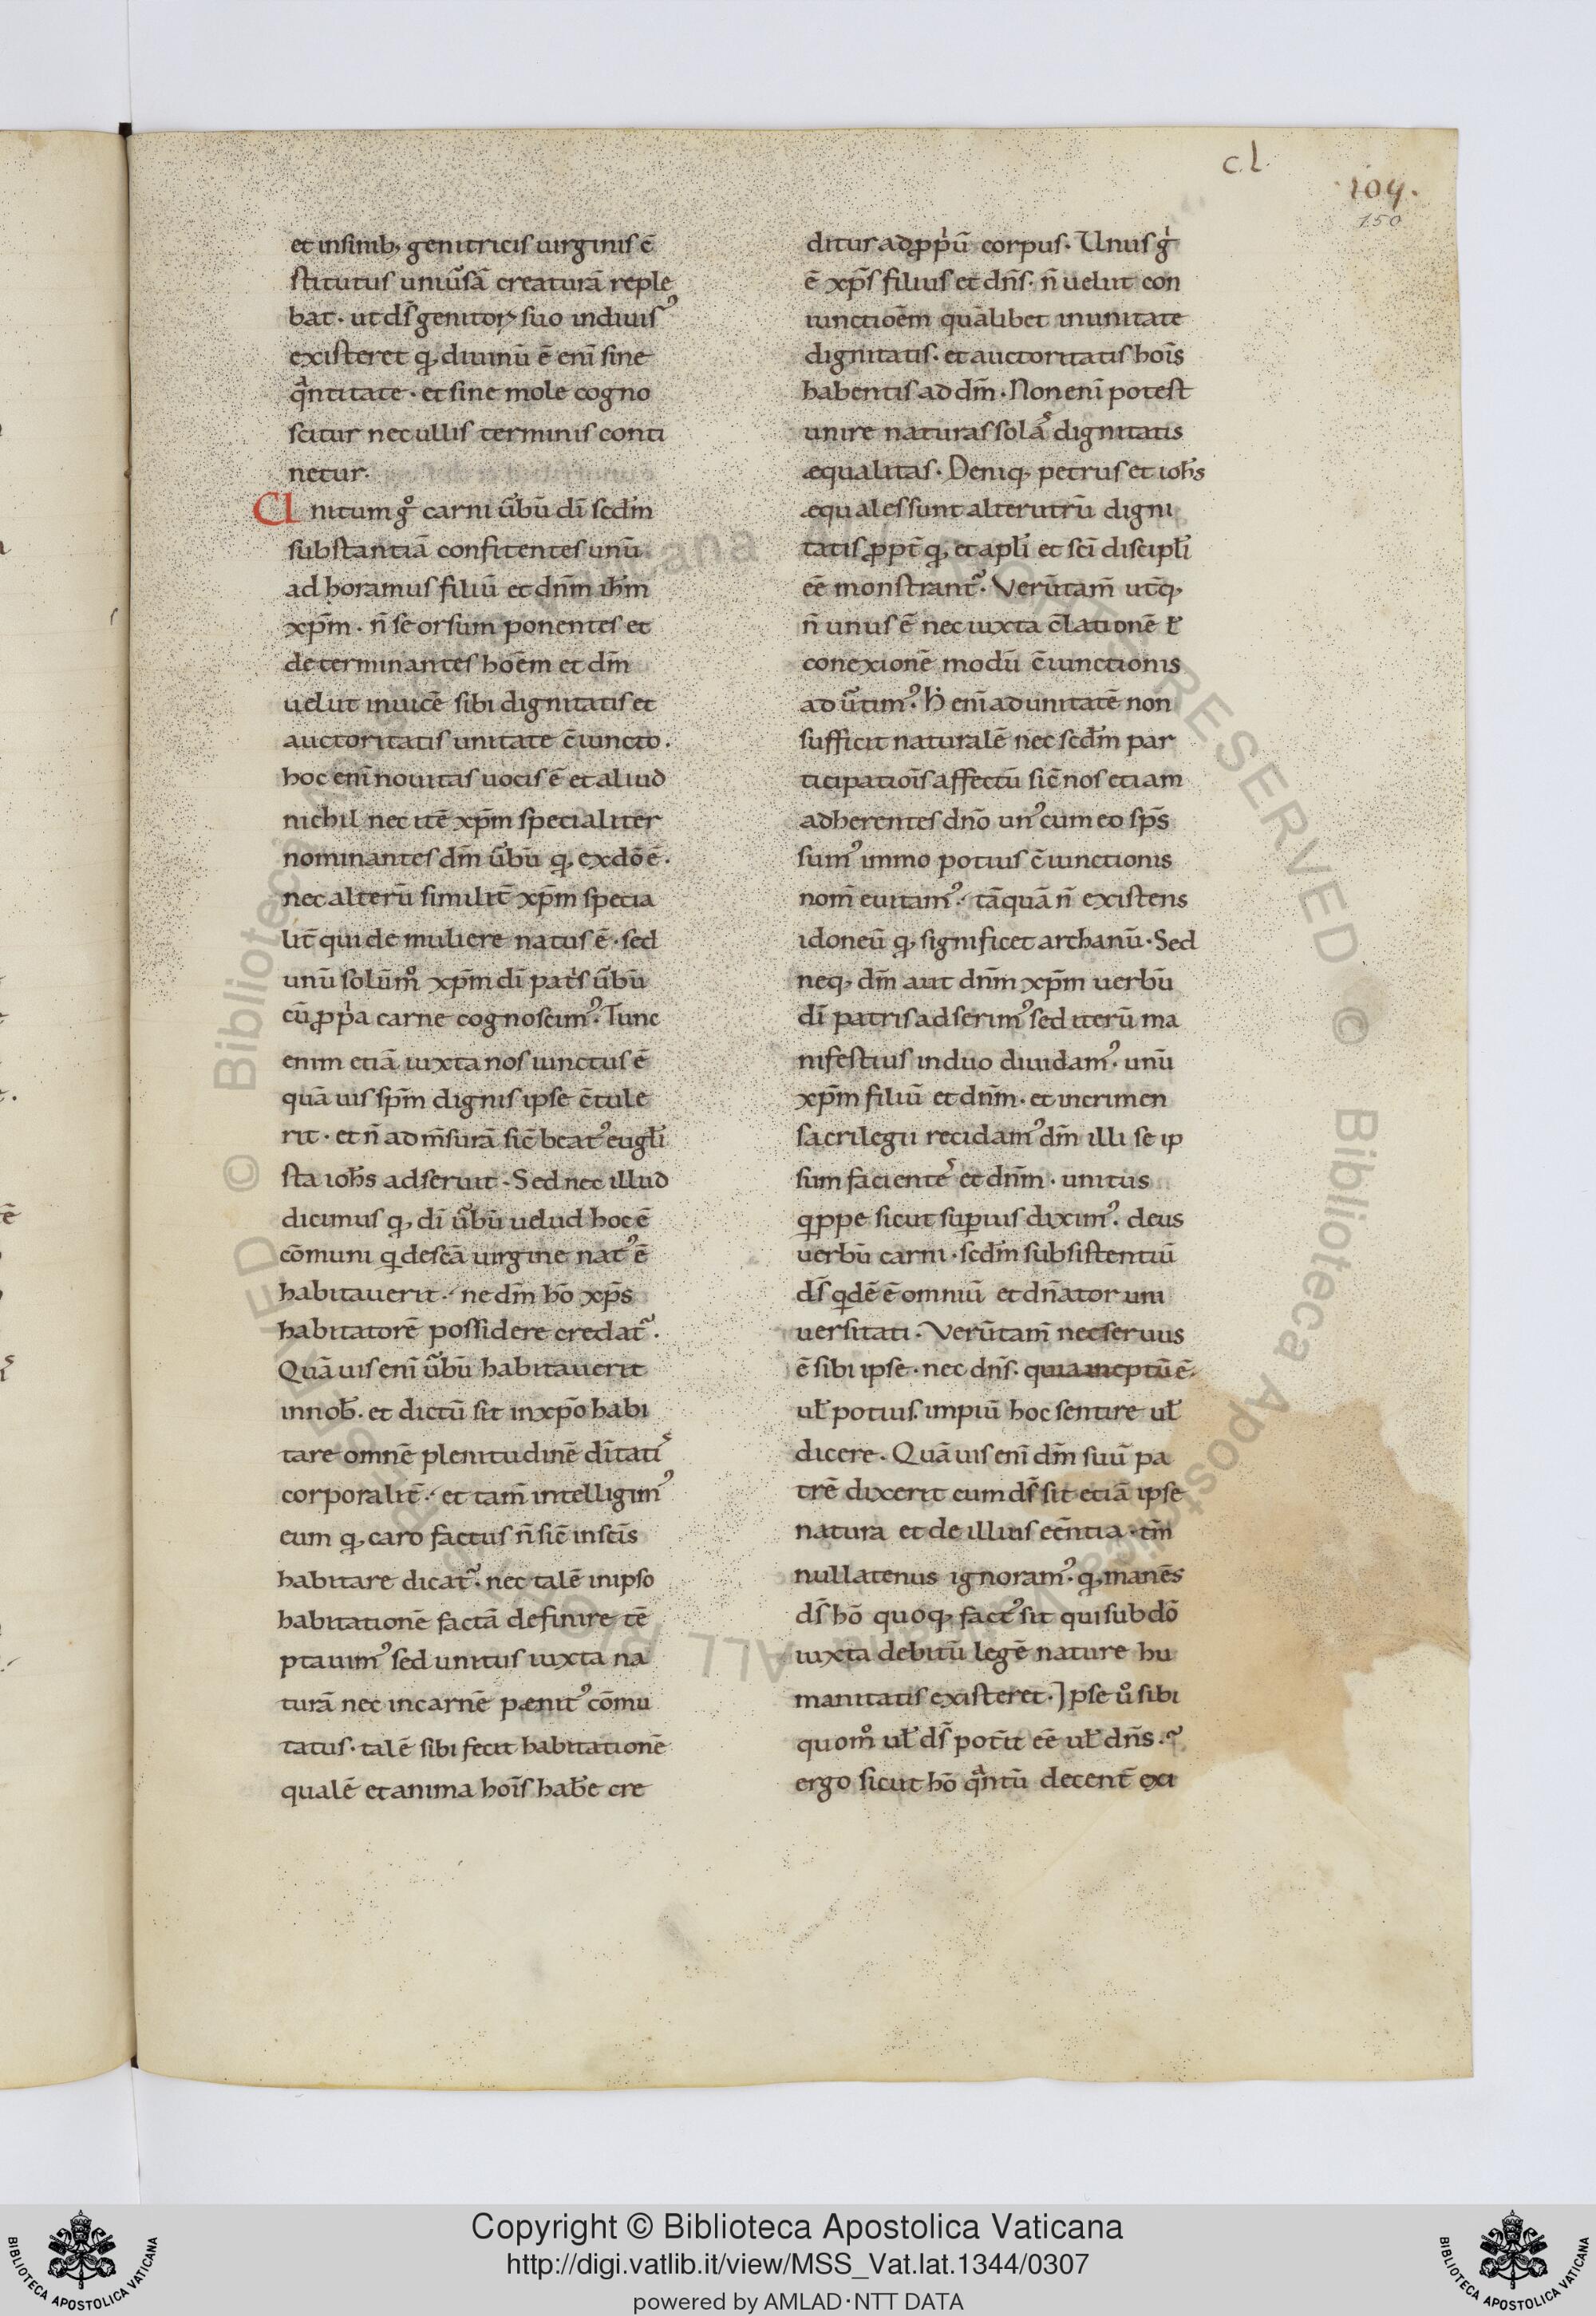 c.l.
109.
150
et insinib; genitricis uirginis c̄
stitutus uniūsā creaturā reple
bat · ut dr̄ genitoꝝ suo indiuisꝰ
existeret ꝙ, diuinū ē enī sine
qͣntitate · et sine mole cogno
scitur nec ullis terminis conti
netur.
Unitum gͦ carni ūbū dī scđm
substantiā confitentes unū
ad horamus filiū et dnm̄ ihm̄
xp̄m · n̄ seorsum ponentes et
determinantes hoēm et dm̄
uelut inuicē sibi dignitatis et
auctoritatis unitate c̄iuncto.
hoc enī nouitas uocis ē et aliud
nichil nec itē xp̄m specialiter
nominantes dm̄ ūbū ꝙ, ex dō ē.
nec alterū similit̄ xp̄m specia
lit̄ qui de muliere natus ē · sed
unū solūmͦ xp̄m dī patͥs ūbū
cū ꝓpͥa carne cognoscimꝰ. Tunc
enim etiā iuxta nos iunctus ē
quāuis sp̄m dignis ipse c̄tule
rit · et n̄ ad m̄surā sic̄ beatꝰ eugłi
sta ioh̄s adseruit · Sed nec illud
dicimus ꝙ, dī ūbū uelud hoc ē
cōmuni q̨ de scā uirgine natꝰ ē
habitauerit · ne dm̄ hō xp̄s
habitatorē possidere credat᷑.
Quāuis enī ūbū habitauerit
in nob̄. et dictū sit in xp̄o habi
tare omnē plenitudinē dītatiˢ
corporalit̄. et tam̄ intelligimꝰ
eum ꝙ, caro factus n̄ sic̄ in scīs
habitare dicat᷑. nec talē in ipso
habitationē factā definire tē
ptauimꝰ sed unitus iuxta na
turā nec in carnē pænitꝰ cōmu
tatus · talē sibi fecit habitationē
qualē et anima hoīs hab̄e cre
ditur ad ꝓpͥū corpus. Unus gͥ
ē xp̄s filius et dn̄s · n̄ uelut con
iunctioēm quālibet in unitate
dignitatis · et auctoritatis hoīs
habentis ad dm̄ · Non enī potest
unire naturas solaˢ dignitatis
æqualitas · Deniq; petrus et ioh̄s
æquales sunt alterutrū digni
tatis ꝓpt̄ ꝙ, et apłi et scī discipłi
eē monstrant᷑. Verūtam̄ ut̄q;
n̄ unus ē nec iuxta c̄lationē ł
conexionē modū c̄iunctionis
ad ūtimꝰ. H̄ enī ad unitatē non
sufficit naturalē nec scđm par
ticipatioīs affectū sic̄ nos etiam
adherentes dnō unꝰ cum eo sp̄s
sumꝰ immo potius c̄iunctionis
nom̄ euitamꝰ. tāquā n̄ existens
idoneū ꝙ, significet archanū · Sed
neq; dm̄ aut dnm̄ xp̄m uerbū
dī patris adserimꝰ sed iterū ma
nifestius in duo diuidamꝰ. unū
xp̄m filiū et dnm̄ · et in crimen
sacrilegii recidamꝰ dm̄ illi se ip
sum facienteˢ et dnm̄ · unitus
q̨ppe sicut suꝑius diximꝰ. deus
uerbū carni · scđm subsistentiū
dr̄ q̨dē ē omniū et dn̄ator uni
uersitati · Verūtam̄ nec seruus
ē sibi ipse · nec dn̄s · quia ineptū ē.
uł potius impiū hoc sentire uł
dicere · Quāuis enī dm̄ suū pa
trē dixerit cum ds̄ sit etiā ipse
natura et de illius eēntia · tm̄
nullatenus ignoramꝰ. ꝙ, manēs
ds̄ hō quoq; factꝰ sit qui sub dō
iuxta debitū legē nature hu
manitatis existeret · Ipse uͦ sibi
quomͦ uł ds̄ potīt eē uł dn̄s.
ergo sicut hō qͣntū decent̄ exi
Copyright © Biblioteca Apostolica Vaticana
http://digi.vatlib.it/view/MSS_Vat.lat.1344/0307
powered by AMLAD·NTT DATA